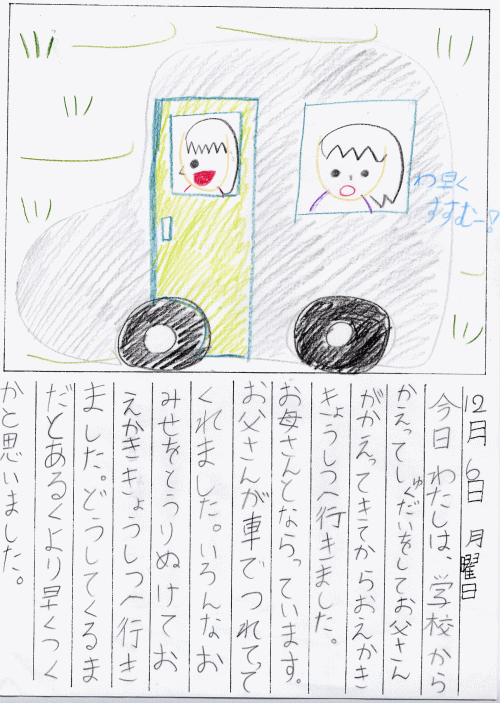 わ早く
すすむー!
12月 6日 月曜日
今日わたしは、学校から
かえってしゅくだいをしてお父さん
がかえってきてからおえかき
きょうしつへ行きました。
お母さんとならっています。
お父さんが車でつれてって
くれました。いろんなお
みせをとうりぬけてお
えかききょうしつへ行き
ました。どうしてくるま
だとあるくより早くつく
かと思いました。